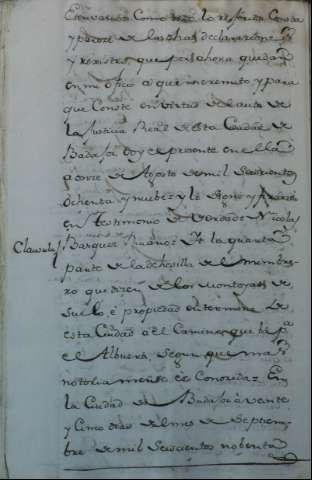 como todo lo referido consta
y parece de las dhas declaraziones
y rexistro que por ahora quedan
en mi ofizio a que me remito y para
que conste en virtud de lauto de
la Justicia Real de esta Ciudad de
Badajoz doy el presente en ella a
de Agosto de mil seiscientos
ochenta y nuebe y lo signo y firmo
en testimonio de verdad Nicolas
Clausula Basquez Ruano It la quarta
parte de la dehesilla de el membri-
ro que dizen de los montoyas de
suelo e propiedad termino de
esta Ciudad a el Camino que ba pa
el Albuera, segun que mas
notoriamente es Conozida = En
la Ciudad de Badajoz a veinte
y Cinco dias de el mes de Septiem-
bre de mil seiscientos nobenta